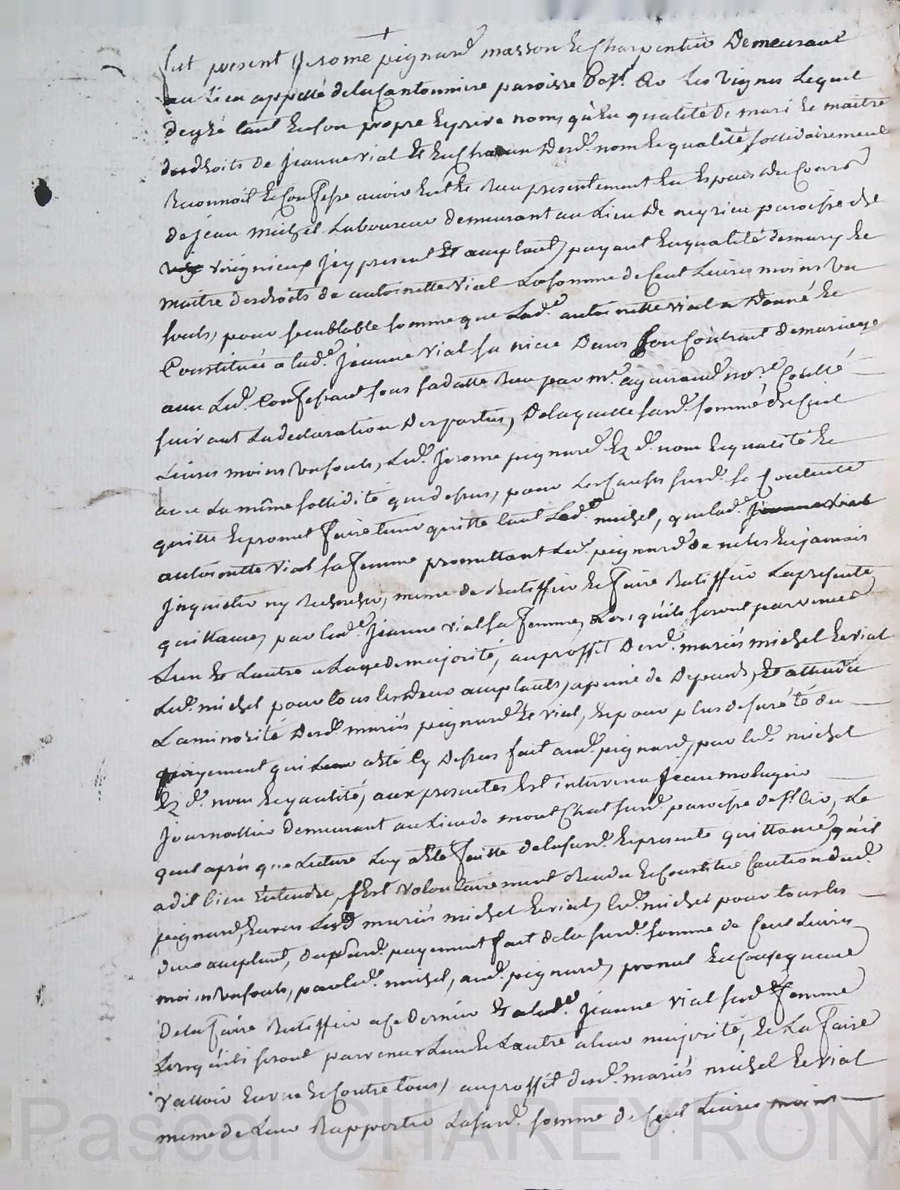 fut present Jerome peignard masson et Charpentier Demeurant
au lieu appellé dela Cantonniere paroisse de st. Cir les vignes Lequel
degré tant en son propre et privé nom, qu'en qualité de mari et maitre
desdroits de jeanne vial et en Chacun Desd. nom et qualité sollidairement
Reconnoit et Confesse avoir eut et Reçu presentement en Especes du Cours
de jean michel Laboureur demeurant au Lieu De paroisse de
virignieux jcy present et acceptant, payant en qualité de mary et
maitre des droits de antoinette vial La somme de Cent Livres moins un
souls, pour semblable somme que Lad. antoinette vial a Donné et
Constituée a lad. jeanne vial sa niece Dans son Contrant de mariage
avec Led. Confessant sous sa datte Reçu par me. no.re
suivant La declaration des parties, De laquelle susd. somme de Cent
Livres moins un souls, Led. Jerome peignard Ez d. nom et qualité et
avec La même sollidité que dessus, pour Les Causes susd. se Contente
quitte et promet faire tenir quitte tant Led. michel, que lad. jeanne vial
antoinette vial sa femme promettant Led. peignard de ne les en jamais
jnquieter ny Rechercher, meme de Ratiffier et faire Ratiffier La presente
quittance, par lad. jeanne vial sa femme, Lors qu'ils seront parvenues
L'un et L'autre a L'age de majorité, au proffit Desd. mariés michel et vial
Led. michel pour tous les deux acceptants, a peine de Depends, Et attendu
La minorité Desd. mariés peignard et vial, et pour plus de sureté du
payement qui Leur a été Cy Dessus fait aud. peignard, par led. michel
Ez d. nom et qualité, aux presentes Est intervenu Jean
journallier demeurant au Lieu de mont Chat susd. paroisse de st. Cir, Le
quel aprés que Lecture Luy a été faitte de la susd. et presente quittance, qu'il
a dit bien Entendre, s'Est volontairement Rendu et Constitué Caution dud.
peignard, Envers Lesd mariés michel et vial, led. michel pour tous les
deux acceptant, du susd. payement fait de la susd. somme de Cent Livres
moins un souls, par led. michel, aud. peignard, promet En Consequence
De la faire Ratiffier a ce Dernier et a lad. jeanne vial sad. femme
Lorsqu'ils seront parvenus L'un et L'autre a leur majorité, et La faire
valloir Envers et Contre tous, au proffit desd. mariés michel et vial
meme de Leur Rapporter La susd. somme de Cent Livres moins
Pascal CHAREYRON